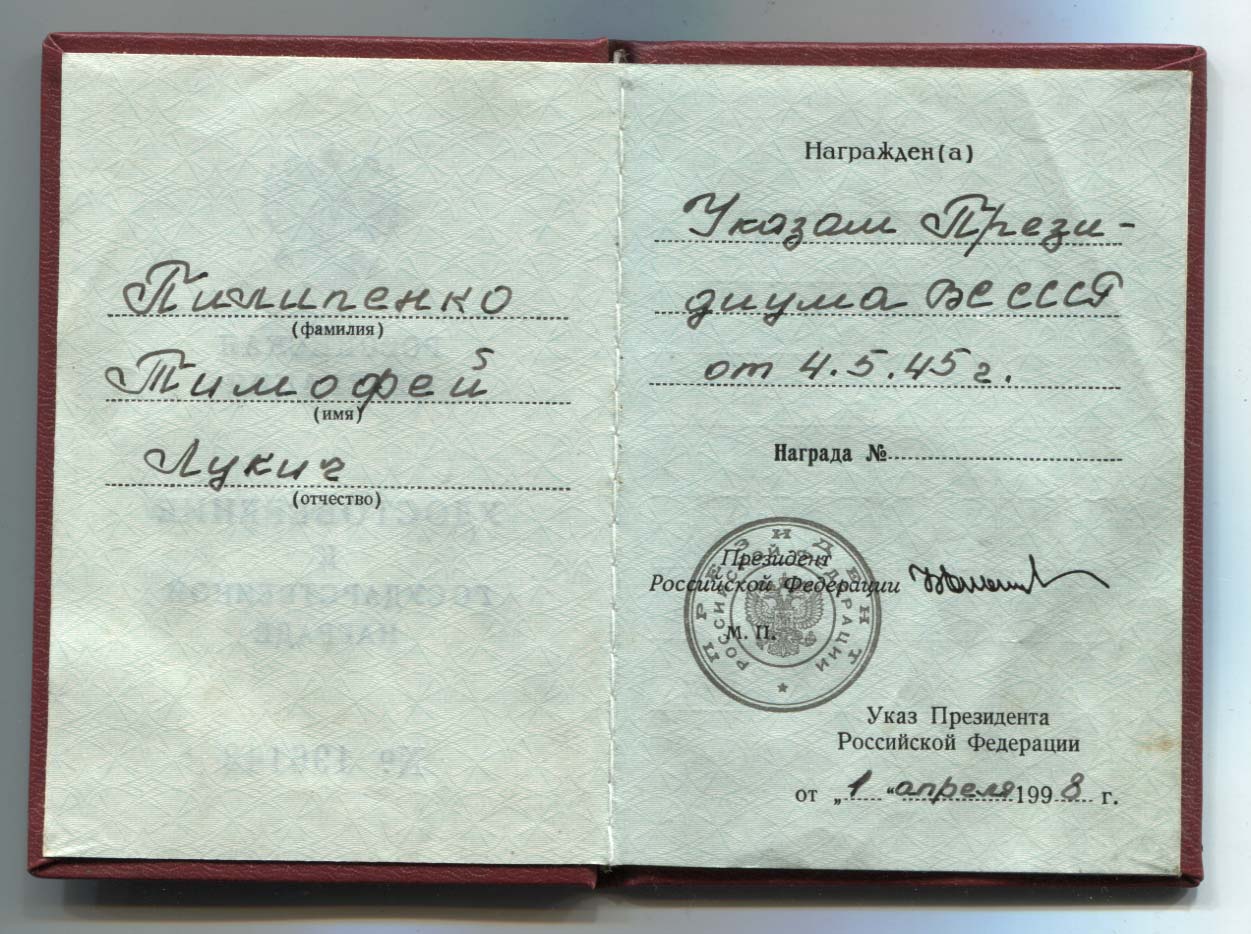 Пилипенко
(фамилия)
Тимофей
(имя)
Лукич
(отчество)
Награжден(а)
Указом Прези-
диума ВС СССР
от 4.5.45 г.
Награда №
Президент
Российской Федерации
М. П.
ПРЕЗИДЕНТ
РОССИЙСКОЙ ФЕДЕРАЦИИ
Указ Президента
Российской Федерации
от „1“ апреля 1998 г.